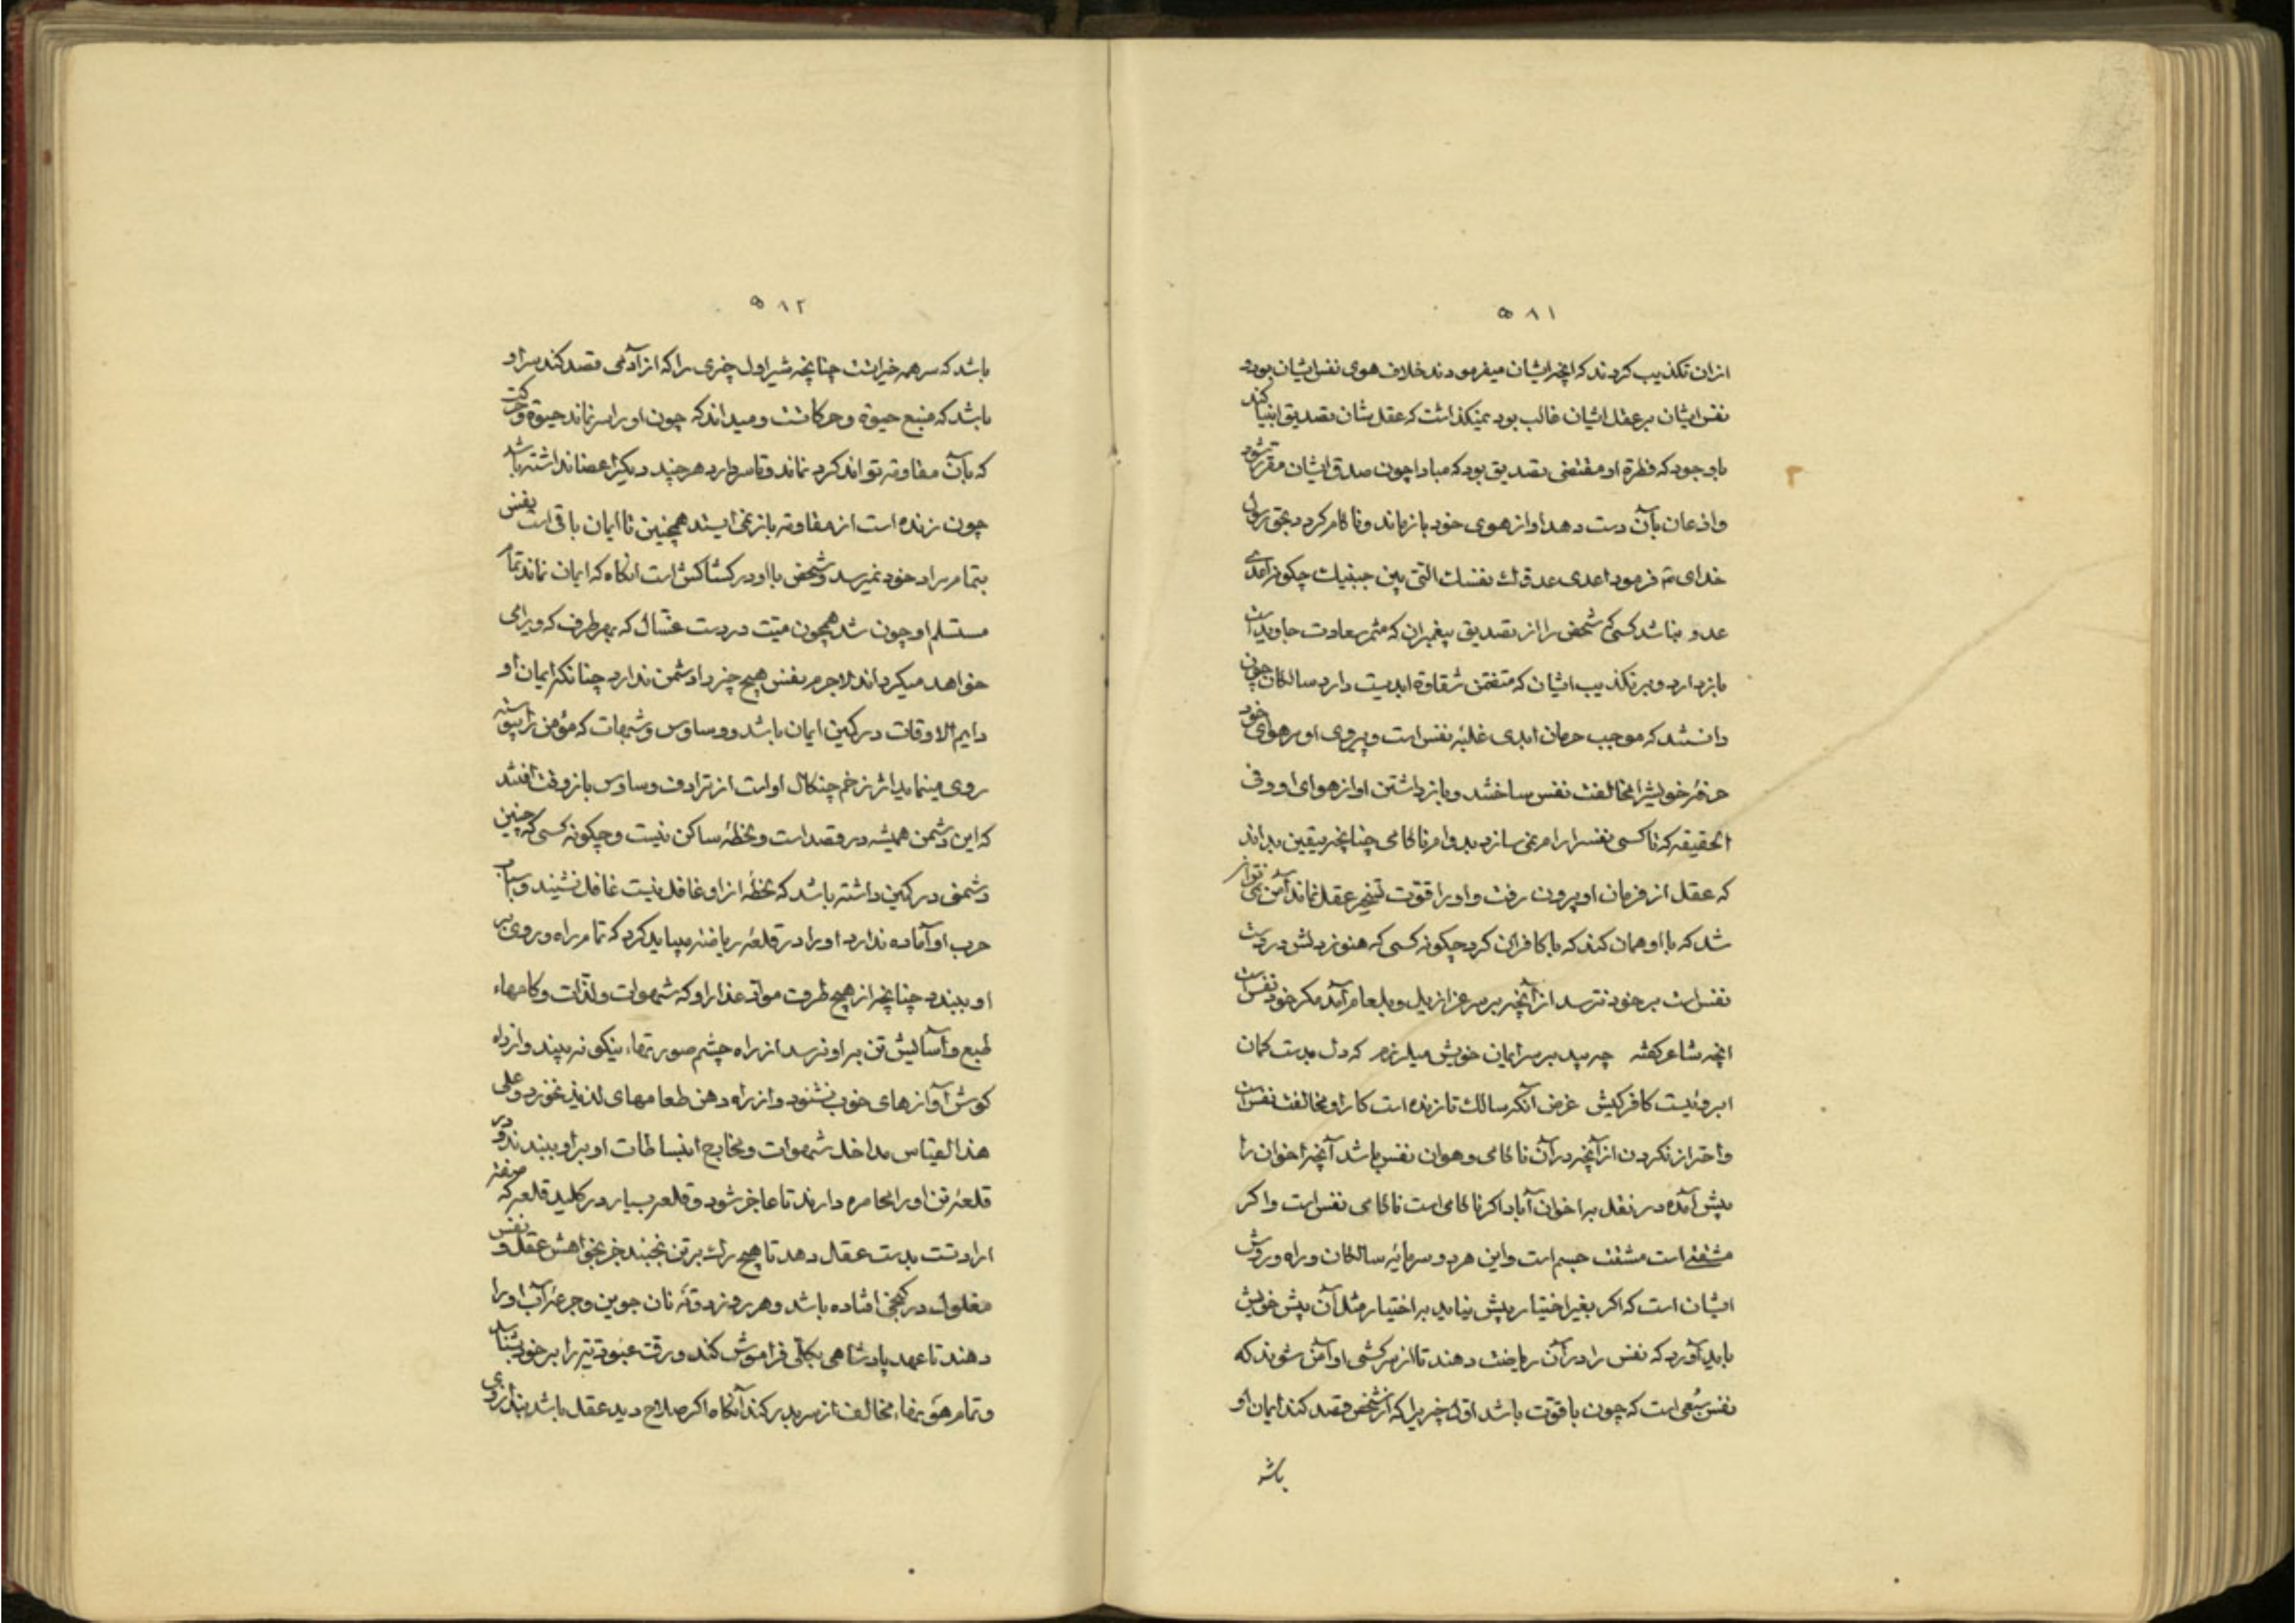 ۵۸۱
از ان تکذیب کردند که انچه ایشان میفرمودند خلاف هوی نفس ایشان بود و
نفس ایشان بر عقل ایشان غالب بود نمیکذاشت که عقل شان تصدیق انبیا کند
با وجود که فطرة او مقتضی تصدیق بود که مبادا چون صدق ایشان مقرر شود
واذعان بآن دست دهد او از هوی خود باز ماند و ناکام کردد بحق رسول
خدای تم فرمود اعدی عدوک نفسک التی بین جنبیک چکونه اعدی
عدو نباشد کسی که شخص را از تصدیق پیغمبران که مثمر سعادت جاویدست
باز دارد و بر تکذیب ایشان که متضمن شقاوة ابدیت دارد سالکان چون
دانستند که موجب حرمان ابدی غلبه نفس است و پیروی او بر هوای خود
حرفه خویش را مخالفت نفس ساختند و باز داشتن او از هوای او و فی
الحقیقه که تا کسی نفس را رام نمی سازد بدوام ناکامی چنانچه بیقین بداند
که عقل از فرمان او بیرون رفت و او را قوت تسخیر عقل نماند آمن نمی تواند
شد که با او همان کند که با کافران کرد چکونه کسی که هنوز دلش در دست
نفس است بر خود نترسد از آنچه بر سر عزازیل و بلعام آمد مکر خود نفس است
انچه شاعر کفته چه بید بر سر ایمان خویش میلرزم که دل بدست کمان
ابروئیست کافر کیش غرض آنکه سالک تا زنده است کار او مخالفت نفس است
واحتراز نکردن از آنچه در آن ناکامی و هوان نفس باشد آنچه اخوان را
پیش آمده در نقل براخوان آباد اکر ناکامی است ناکامی نفس است و اکر
مشقتی است مشقت جسم است و این هر دو سرمایه سالکان و راه و روش
ایشان است که اکر بغیر اختیار پیش نیاید به اختیار مثل آن پیش خویش
باید آورد که نفس را در آن ریاضت دهند تا از سرکشی او آمن شوند که
نفس سبعی است که چون با قوت باشد اول چیزیرا که از شخص قصد کند ایمان او
باشد
۵۸۲
باشد که سر همه خیراتست چنانچه شیر اول چیزی را که از آدمی قصد کند سر او
باشد که منبع حیوة و حرکاتست و میداند که چون او را سر نماند حیوة و حرکت
که بآن مقاومة تواند کرد نماند و تا سر دارد هر چند دیکر اعضا نداشته باشد
چون زنده است از مقاومة باز نمی ایستد همچنین تا ایمان باقی است نفس
بتمام مراد خود نمیرسد و شخص با او در کشاکش است انکاه که ایمان نماند تمام
مستلم او چون شد همچون میت در دست غسال که بهر طرف که ویرا می
خواهد میکرداند لاجرم نفس هیچ چیز را دشمن ندارد چنانکه ایمان او
دایم الاوقات در کمین ایمان باشد و وساوس و شبهات که مؤمن را پیوسته
روی مینماید اثر زخم چنکال اوست از ترادف وساوس باز وقت افتند
که این دشمن همیشه در قصد است و لحظه ساکن نیست و چکونه کسی که چنین
دشمنی در کمین داشته باشد که لحظه از او غافل نیست غافل نشیند و اسباب
حرب او آماده ندارد او را در قلعه ریاضة میباید کرد که تمام راه و روی بر
او ببندد چنانچه از هیچ طرف مواد غذا را و که شهوات و لذات و کامهاء
طبع و آسایش تن بر او نرسد از راه چشم صورتهاء نیکو نه بیند و از راه
کوش آوازهای خوب نشنود و از راه دهن طعامهای لذیذ نخورد و علی
هذا القیاس مداخل شهوات و مخارج انبساطات او بر او ببندند و در
قلعه تن او را محاصره دارند تا عاجز شود و قلعه بسپارد کلید قلعه که
ارادتست بدست عقل دهد تا هیچ رک بر تن نجنبد جز بخواهش عقل و نفس
مغلول در کنجی افتاده باشد و هر روز دو ته نان جوین و جرعه آب او را
دهند تا عهد پادشاهی بکلی فراموش کند و رقت عبودتیه را بر خود بشناسد
و تمام هویتهاء مخالف از سر بدر کند آنکاه اکر صلاح دید عقل باشد بند از وی